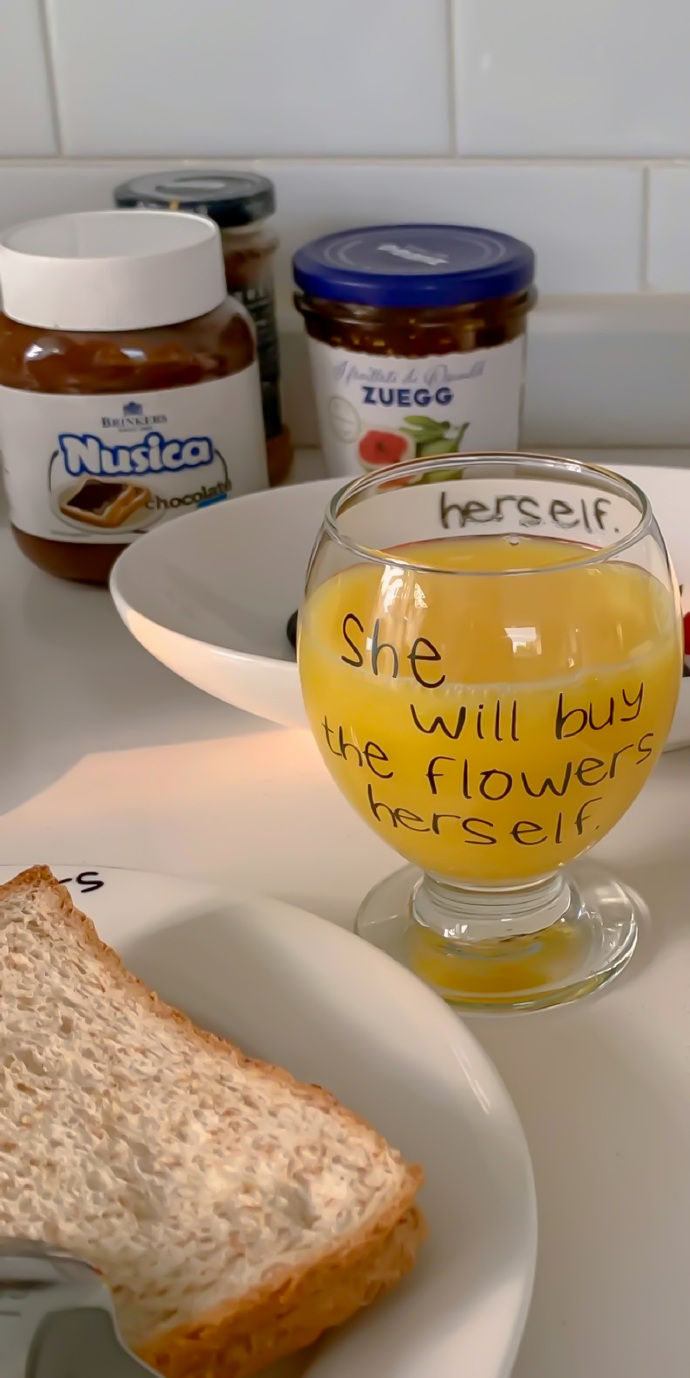 BRINKERS
Nusica
chocolate
ZUEGG
herself.
She
will buy
the flowers
herself.